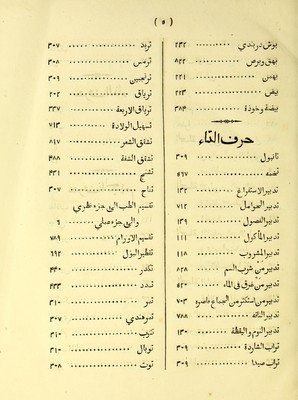 ( ٥ )
بوش دربندي ٢٣٢
بهق وبرص ٨٢٢
بهمن ٢٢١
بيض ٢٢٣
بيضة وخوذة ٣٨٤
حرف التاء
تانبول ٣٠٩
تخمه ٥٦٧
تدبير الاستفراغ ١٣٢
تدبير الحوامل ٧١٢
تدبير الفصول ١٣٩
تدبير المأكول ١١١
تدبير المشروب ١١٨
تدبير من شرب السم ٨٢٨
تدبير من غرق في الماء ٥٢٠
تدبير من استكثر من الجماع فاضره ٧٠٣
تدبير الناقه ٧٨٨
تدبير النوم واليقظة ١٣٠
تراب الشاردة ٣٠٩
تراب صيدا ٣٠٩
تربد ٣٠٧
ترمس ٣٠٨
ترنجبين ٣٠٩
ترياق ٢٠٢
ترياق الاربعة ٢٣٧
تسهيل الولادة ٧١٣
تشقق الشعر ٨١٧
تشقق الشفة ٤٨٨
تشنج ٤٣١
تفاح ٣٠٧
تقسيم الطب الى جزء نظري
والى جزء عملي ٦
تقسيم الاورام ٧٨٩
تقطير البول ٦٩٢
تكدر ٤٤٠
تمدد ٤٣٣
تمر ٣١٠
تمر هندي ٣٠٧
تنوب ٣١٠
توبال ٣١٠
توت ٣٠٨